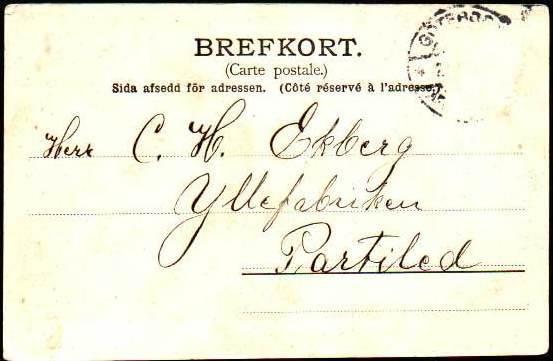 BREFKORT.
(Carte postale.)
Sida afsedd för adressen. (Côté réservé à l'adresse.
GÖTEBOR
Herr C. H. Ekberg
Yllefabriken
Partiled